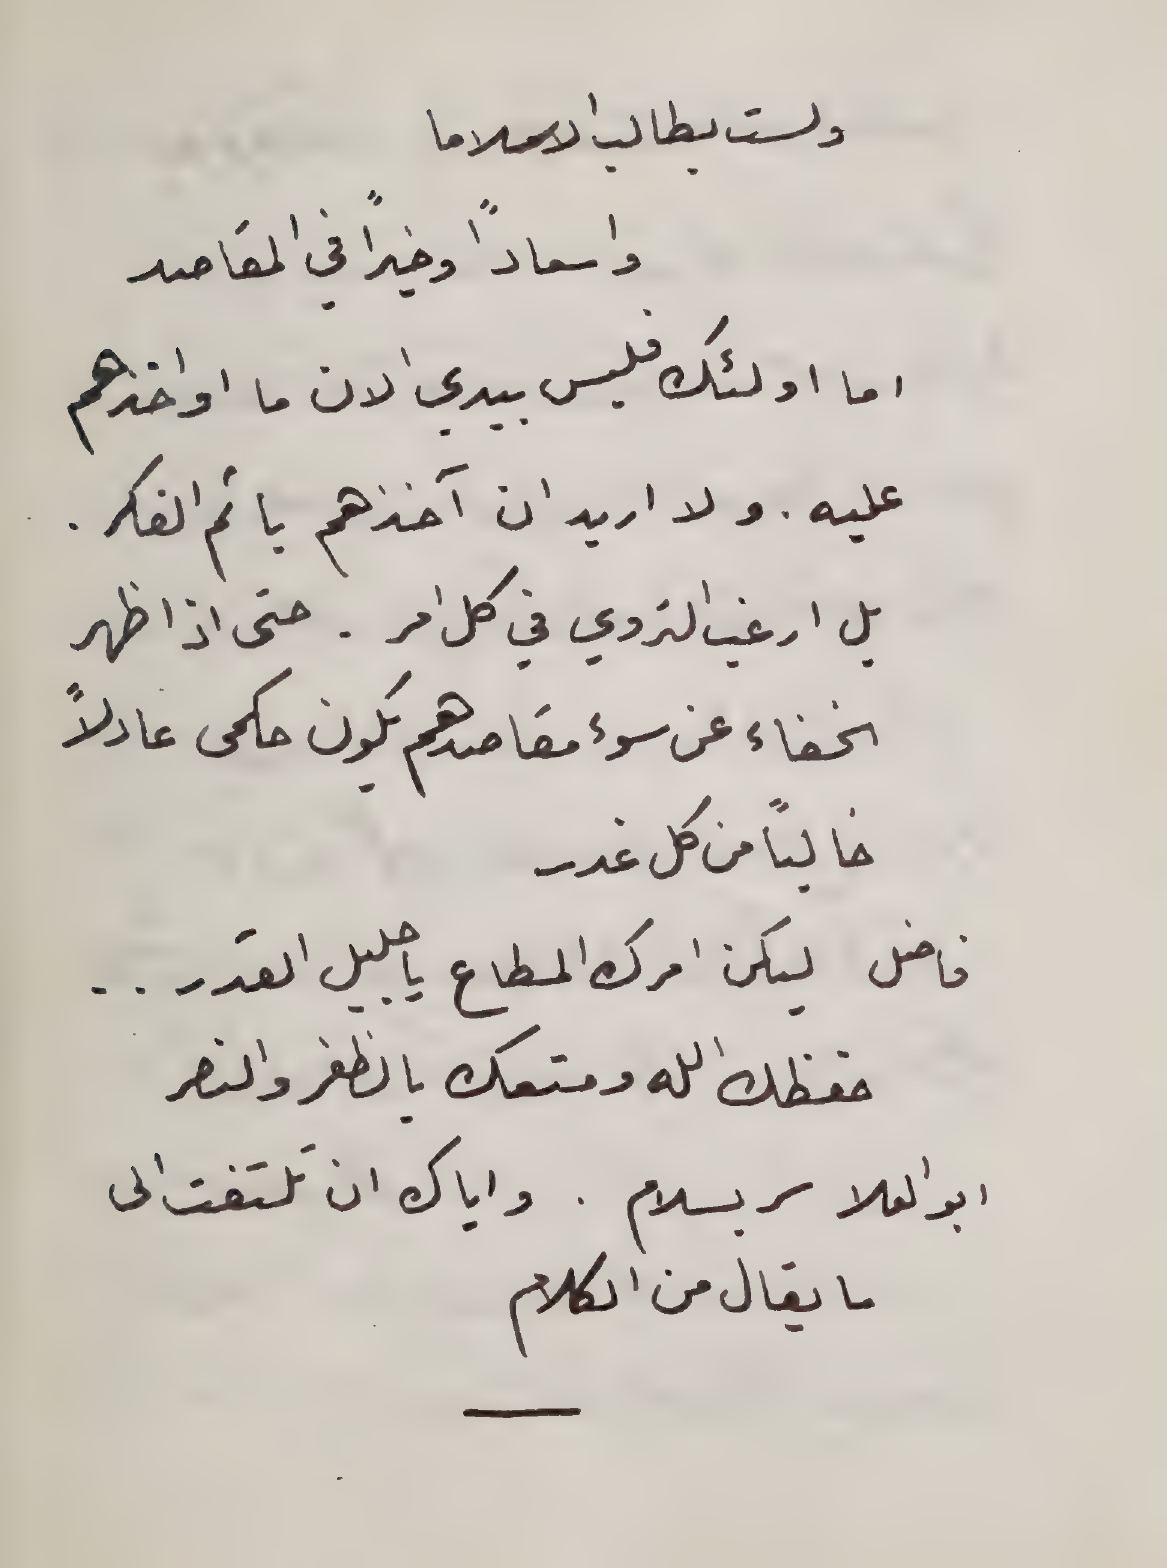 ولست بطالب الا سلاما
واسعاداً وخيراً في المقاصد
اما اولئك فليس بيدي الان ما اواخذهم
عليه . ولا اريد ان آخذهم باثم الفكر .
بل ارغب التروي في كل امر . حتى اذا ظهر
الخفاء عن سوء مقاصدهم يكون حكمى عادلاً
خالياً من كل غدر
فاضل ليكن امرك المطاع يا جليل القدر . .
حفظك الله ومتعك بالظفر والنصر
ابو العلا سر بسلام . واياك ان تلتفت الى
ما يقال من الكلام